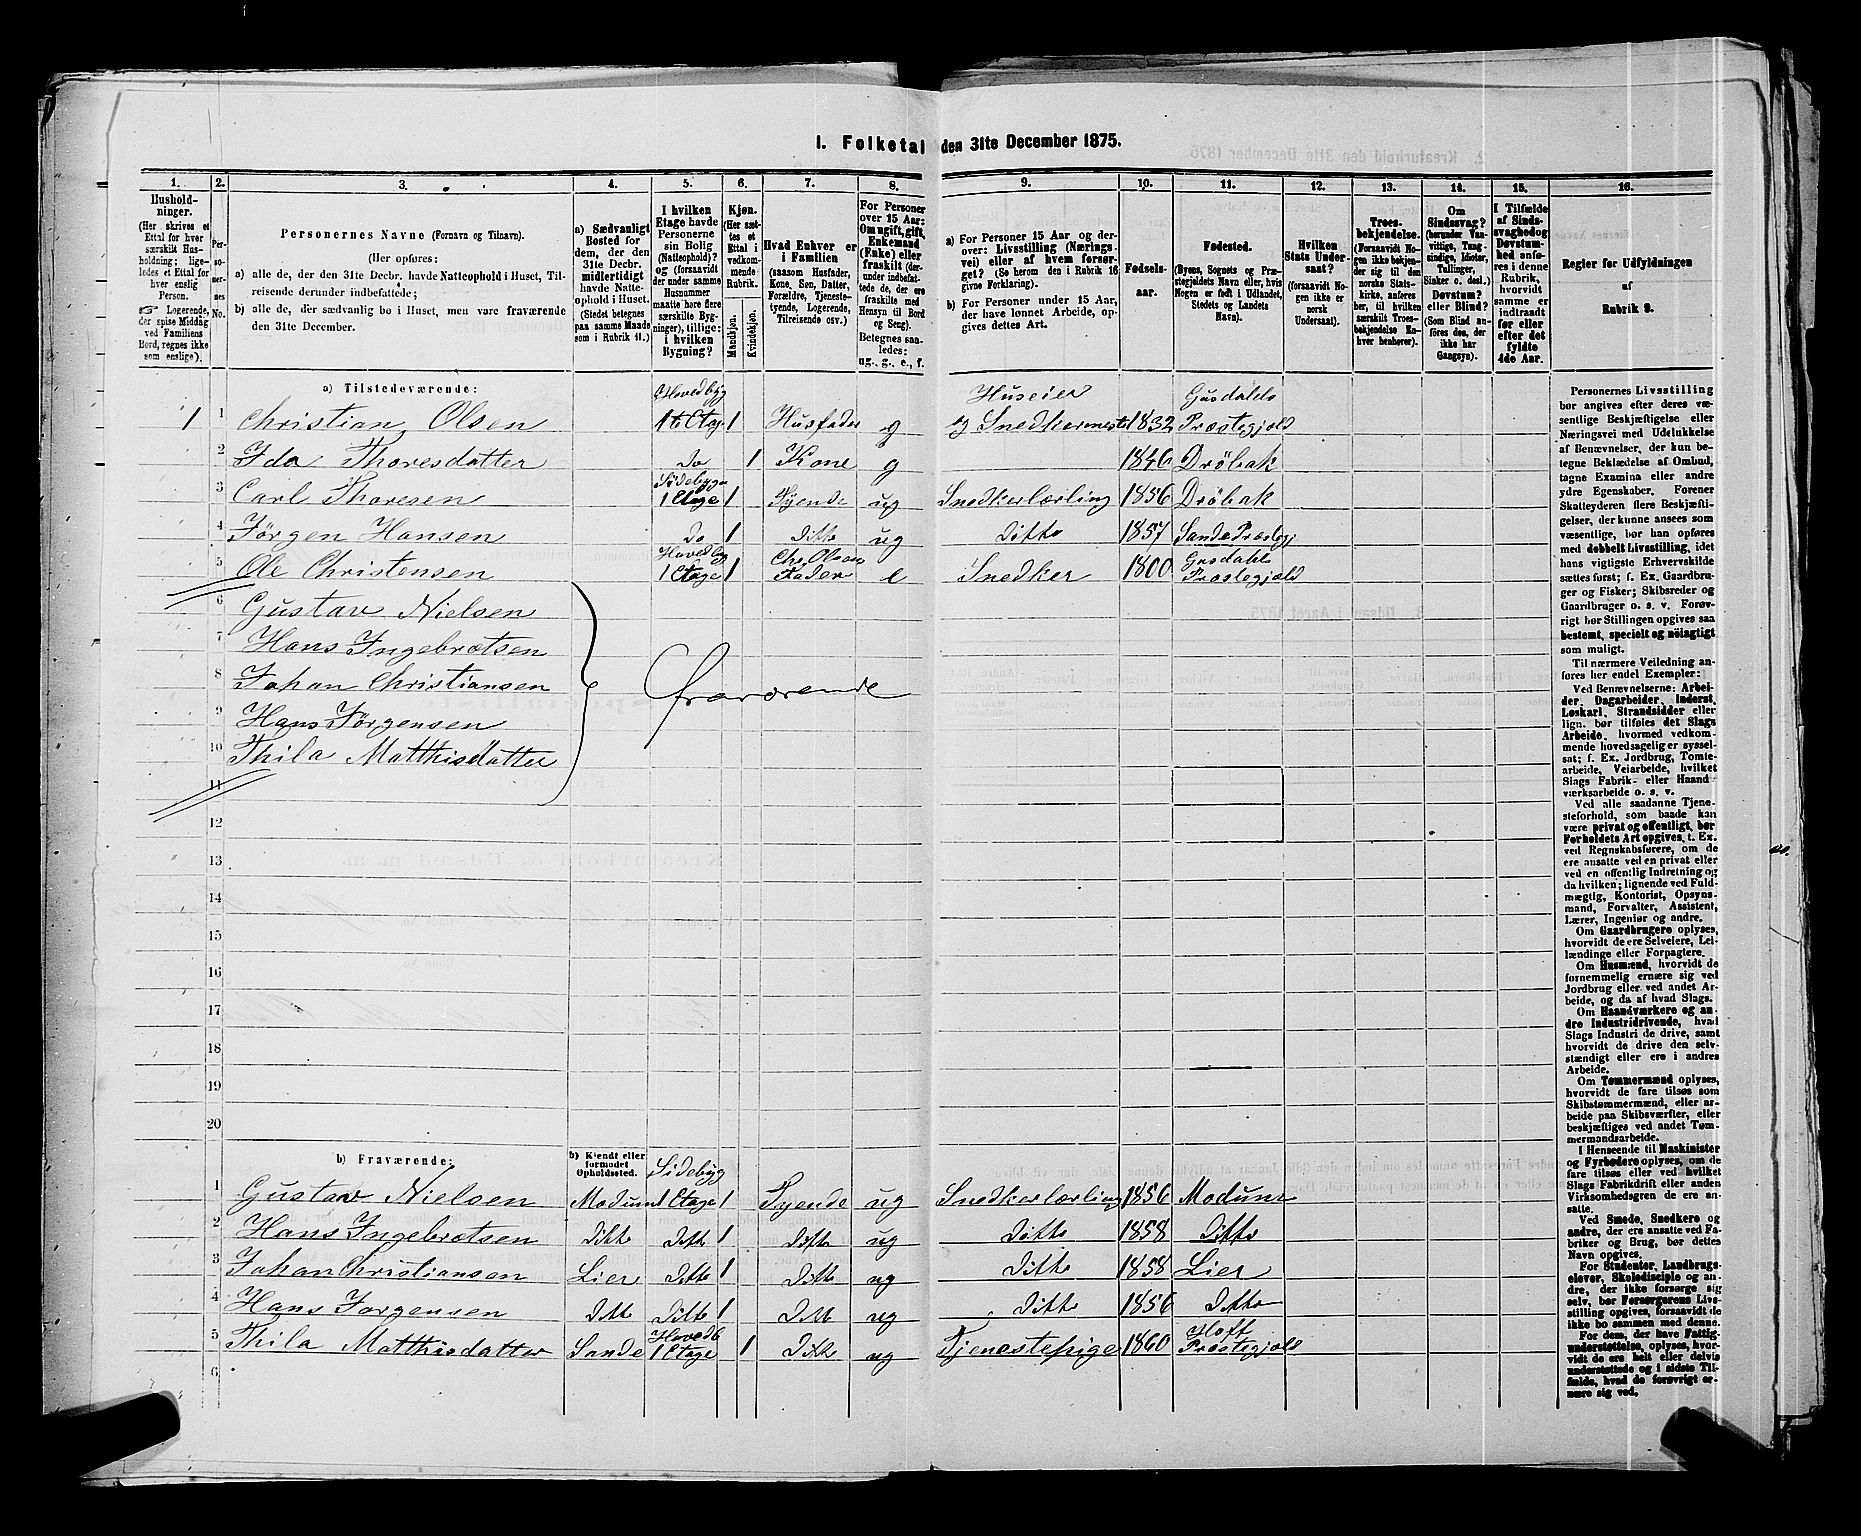 1. Folketal den 31te December 1875.
1. 2. 3. 4. 5. 6. 7. 8. 9. 10. 11. 12. 13. 14. 15. 16.
Hushold-
ninger.
(Her skrives et
Ettal for hver
særskilt Hus-
holdning; lige-
ledes et Ettal for
hver enslig
Person.
☞ Logerende,
der spise Middag
ved Familiens
Bord, regnes ikke
som enslige).
Per-
so-
ner-
nes
No.
Personernes Navne (Fornavn og Tilnavn).
(Her opføres:
a) alle de, der den 31te Decbr. havde Natteophold i Huset, Til-
reisende derunder indbefattede;
b) alle de, der sædvanlig bo i Huset, men vare fraværende
den 31te December.
a) Sædvanligt
Bosted for
dem, der den
31te Decbr.
midlertidigt
havde Natte-
ophold i Huset.
(Stedet betegnes
paa samme Maade
som i Rubrik 11.)
I hvilken
Etage havde
Personerne
sin Bolig
(Natteophold)?
og (forsaavidt
der under samme
Husnummer
maatte høre flere
særskilte Byg-
ninger), tillige:
i hvilken
Bygning?
Kjøn.
(Her sæt-
tes et
Ettal i
vedkom-
mende
Rubrik.
Mandkjøn.
Kvindekjøn.
Hvad Enhver er
i Familien
(saasom Husfader,
Kone, Søn, Datter,
Forældre, Tjeneste-
tyende, Logerende,
Tilreisende osv.)
For Personer
over 15 Aar:
Om ugift, gift,
Enkemand
(Enke) eller
fraskilt (der-
under indbefat-
tede de, der ere
fraskilte med
Hensyn til Bord
og Seng).
Betegnes saa-
ledes:
ug., g., e., f.
a) For Personer 15 Aar og der-
over: Livsstilling (Nærings-
vei) eller af hvem forsør-
get? (Se herom den i Rubrik 16
givne Forklaring).
b) For Personer under 15 Aar,
der have lønnet Arbeide, op-
gives dettes Art.
Fødsels-
aar.
Fødested.
(Byens, Sognets og Præ-
stegjeldets Navn eller, hvis
Nogen er født i Udlandet,
Stedets og Landets
Navn).
Hvilken
Stats Under-
saat?
(forsaavidt No-
gen ikke er
norsk
Undersaat).
Troes-
bekjendelse.
(Forsaavidt No-
gen ikke bekjen-
der sig til den
norske Stats-
kirke, anføres
her, til hvilken
særskilt Troes-
bekjendelse En-
hver henhører).
Om
Sindssvag?
(herunder Van-
vittige, Tung-
sindige, Idioter,
Tullinger,
Sinker o. desl.)
Døvstum?
eller Blind?
(Som Blind an-
føres den, der
ikke har
Gangsyn).
I Tilfælde
af Sinds-
svaghed og
Døvstum-
hed anfø-
res i denne
Rubrik,
hvorvidt
samme er
indtraadt
før eller
efter det
fyldte
4de Aar.
Regler for Udfyldningen
af
Rubrik 9.
a) Tilstedeværende:
1 1 Christian Olsen Hovedbyg 1te Etage 1 Husfader g Huseier og Snedkermester 1832 Præstegjæld
2 Ida Thoresdatter do 1 Kone g 1846 Drøbak
3 Carl Thoresen Sidebygn 1 Etage 1 Tyende ug Snedkerlærling 1856 Drøbak
4 Jørgen Hansen do 1 ditto ug ditto 1857 Sande Præstegj
5 Ole Christensen Hovedbyg 1 Etage 1 Chr. Olsens Fader e Snedker 1800 Præstegjæld
6 Gustav Nielsen
7 Hans Ingebrætsen
8 Johan Christiansen fraværende
9 Hans Jørgensen
10 Thila Matthisdatter
11
12
13
14
15
16
17
18
19
20
b) Fraværende: b) Kjendt eller formodet Opholdssted.
1 Gustav Nielsen Modum Sidebyg 1 Etage 1 Tyende ug Snedkerlærling 1856 Modum
2 Hans Ingebrætsen ditto ditto 1 ditto ug ditto 1858 ditto
3 Johan Christiansen Lier ditto 1 ditto ug ditto 1858 Lier
4 Hans Jørgensen ditto ditto 1 ditto ug ditto 1856 ditto
5 Thila Matthisdatter Sande Hovedb 1 Etage 1 ditto ug Tjenestepige 1860 Hoft Præstegjæld
6
Personernes Livsstilling
bør angives efter deres væ-
sentlige Beskjæftigelse eller
Næringsvei med Udelukkelse
af Benævnelser, der kun be-
tegne Beklædelse af Ombud,
tagne Examina eller andre
ydre Egenskaber. Forener
Skatteyderen flere Beskjæfti-
gelser, der kunne ansees som
væsentlige, bør han opføres
med dobbelt Livsstilling, idet
hans vigtigste Erhvervskilde
sættes først; f. Ex. Gaardbru-
ger og Fisker; Skibsreder og
Gaardbruger o. s. v. Forøv-
rigt bør Stillingen opgives saa
bestemt, specielt og nøiagtigt
som muligt.
Til nærmere Veiledning an-
føres her endel Exempler:
Ved Benævnelserne: Arbei-
der, Dagarbeider, Inderst,
Løskarl, Strandsidder eller
lign. bør tilføies det Slags
Arbeide, hvormed vedkom-
mende hovedsagelig er syssel-
sat; f. Ex. Jordbrug, Tomte-
arbeide, Veiarbeide, hvilket
Slags Fabrik- eller Haand-
værksarbeide o. s. v.
Ved alle saadanne Tjene-
steforhold, som baade kan
være privat og offentligt, bør
Forholdets Art opgives, t. Ex.
ved Regnskabsførere, om de
ere ansatte ved en privat eller
ved en offentlig Indretning og
da hvilken; lignende ved Fuld-
mægtig, Kontorist, Opsyns-
mand, Forvalter, Assistent,
Lærer, Ingeniør og andre.
Om Gaardbrugere oplyses,
hvorvidt de ere Selveiere, Lei-
lændinge eller Forpagtere.
Om Husmænd, hvorvidt de
fornemmelig ernære sig ved
Jordbrug eller ved andet Ar-
beide, og da af hvad Slags.
Om Haandværkere og an-
dre Industridrivende, hvad
Slags Industri de drive, samt
hvorvidt de drive den selv-
stændigt eller ere i andres
Arbeide.
Om Tømmermænd oplyses,
hvorvidt de fare tilsøs som
Skibstømmermænd, eller ar-
beide paa Skibsværfter, eller
beskjæftiges ved andet Tøm-
mermandsarbeide.
I Henseende til Maskinister
og Fyrbødere oplyses, om de
fare tilsøs eller ved hvilket
Slags Fabrikdrift eller anden
Virksomhedsgren de ere an-
satte.
Ved Smede, Snedkere og
andre, der ere ansatte ved Fa-
briker og Brug, bør dettes
Navn opgives.
For Studenter, Landbrugs-
elever, Skoledisciple og an-
dre, der ikke forsørge sig
selv, bør Forsørgerens Livs-
stilling opgives, forsaavidt de
ikke bo sammen med denne.
For dem, der have Fattig-
understøttelse, oplyses, hvor-
vidt de ere helt eller delvis
understøttede og i sidste Til-
fælde, hvad de forøvrigt er-
nære sig ved.